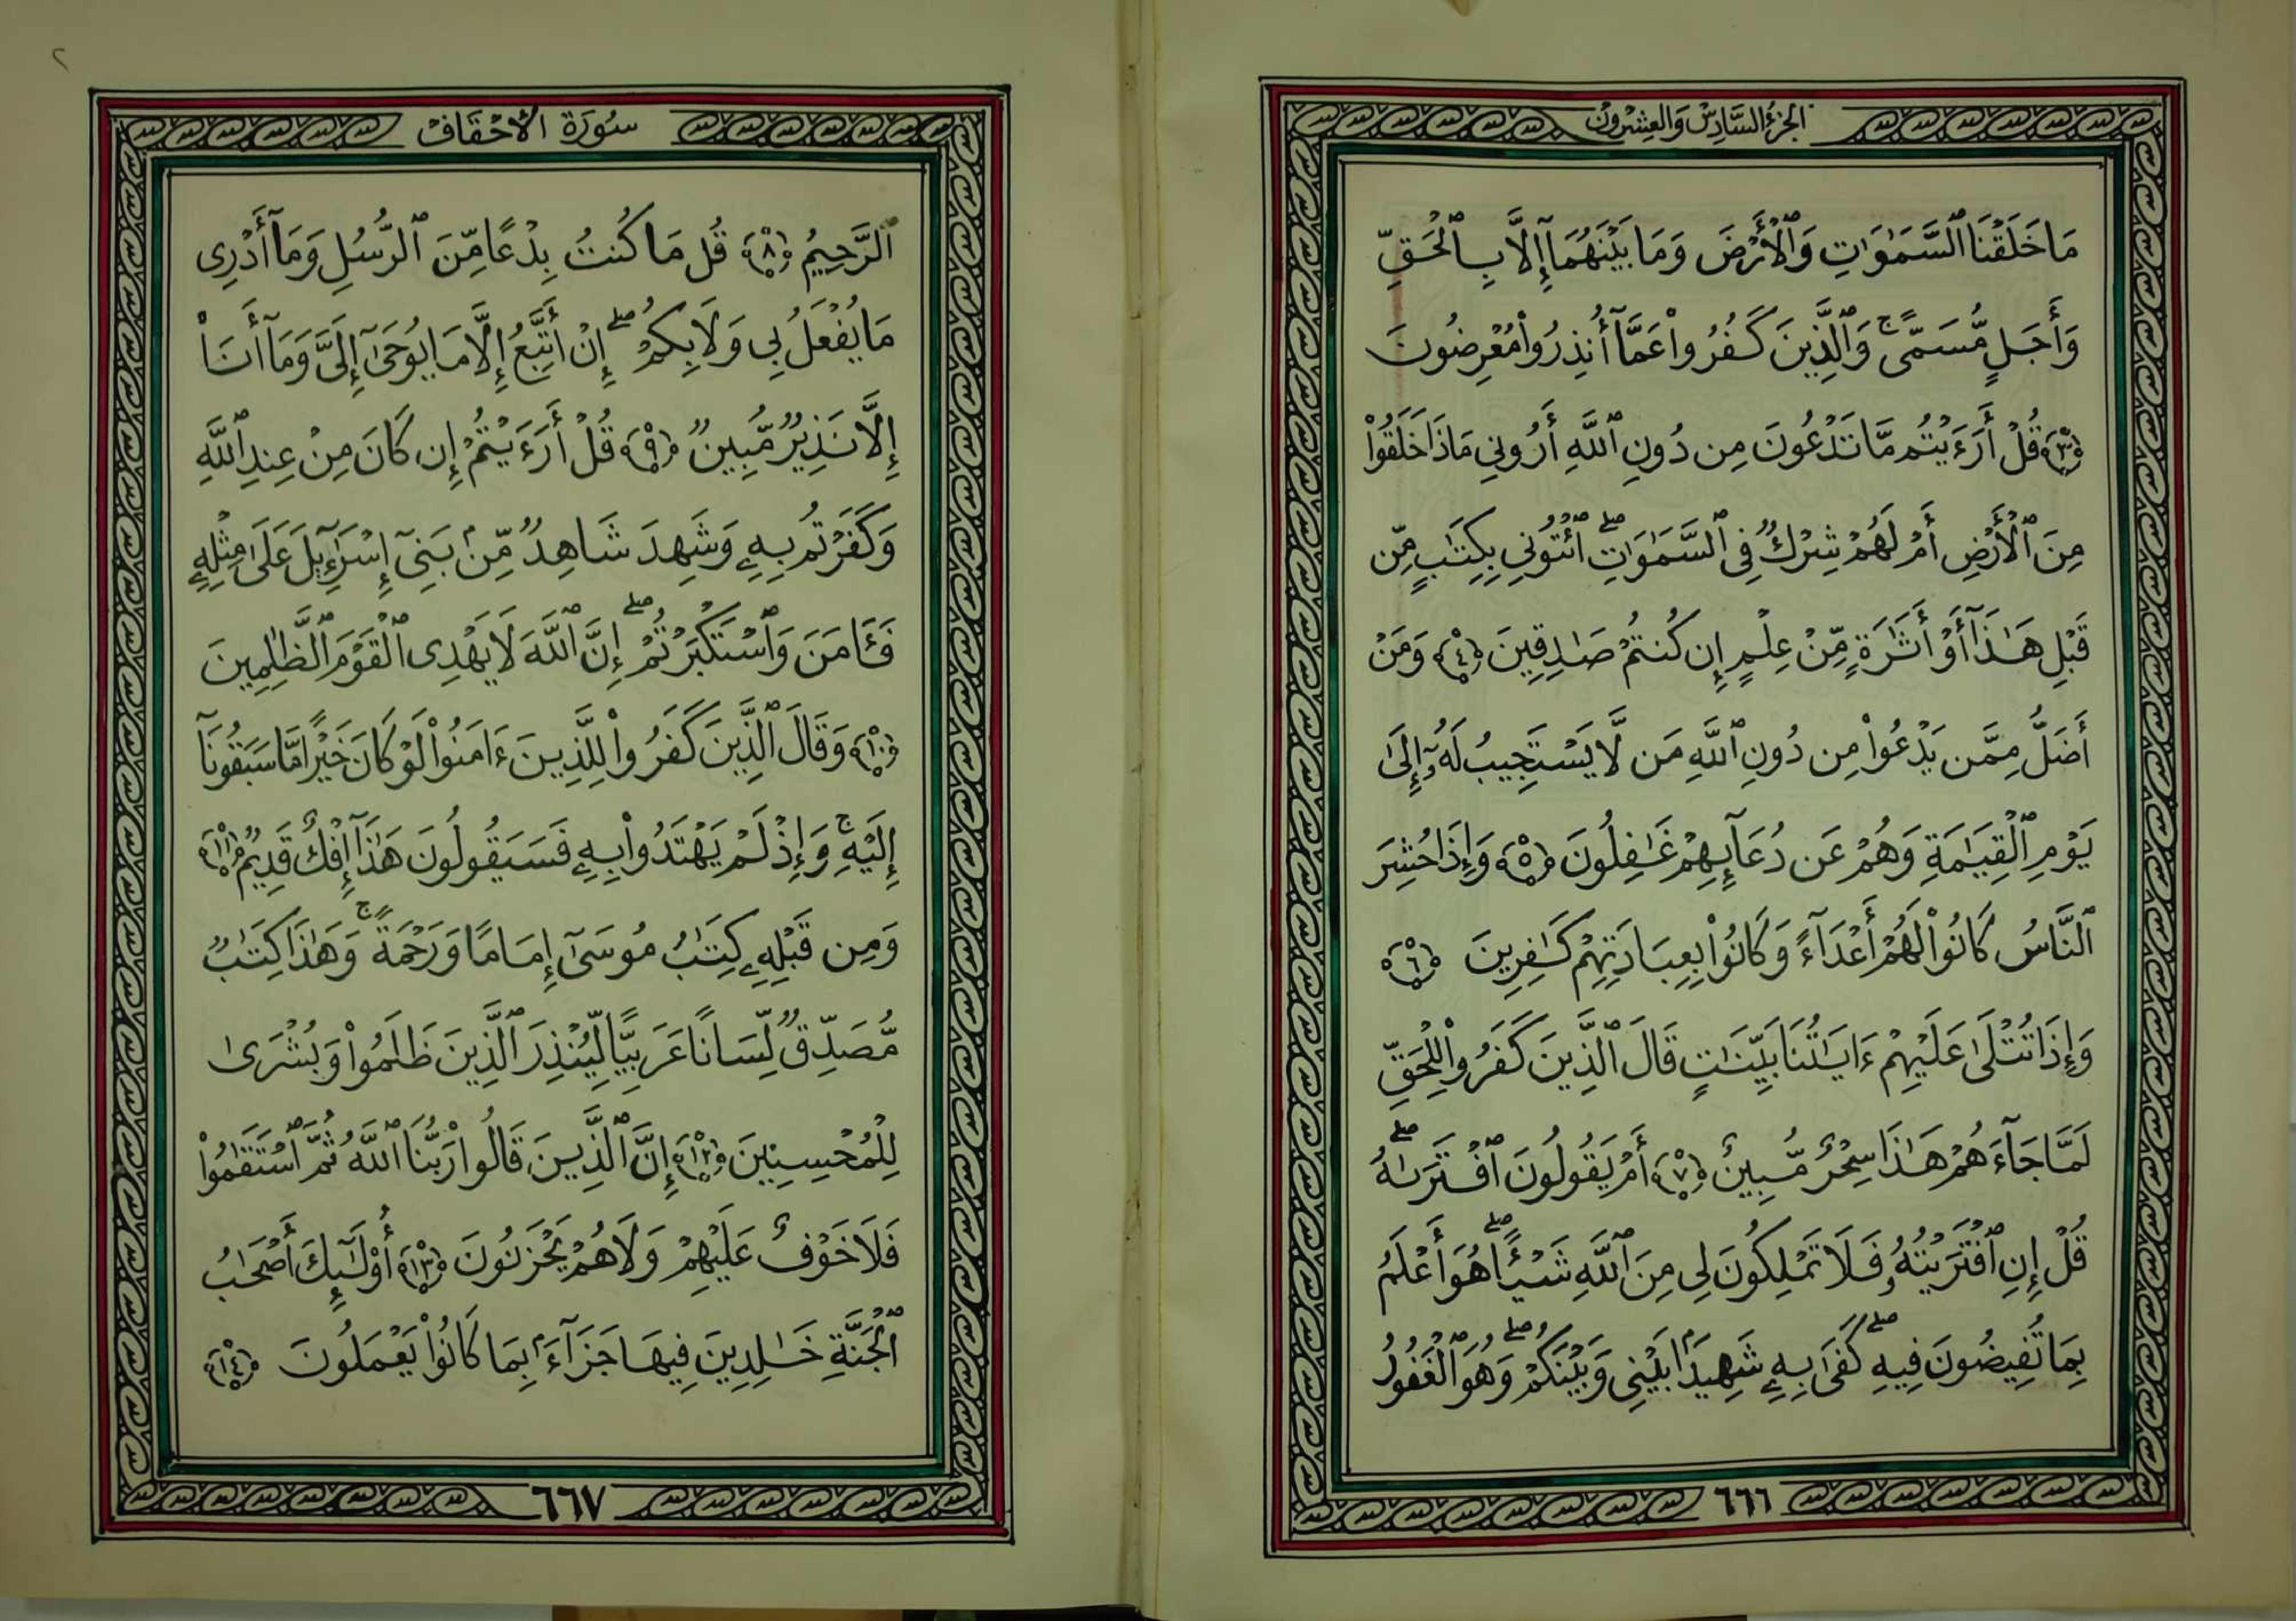 الجزء السادس والعشرون
مَا خَلَقْنَا ٱلسَّمَٰوَٰتِ وَٱلْأَرْضَ وَمَا بَيْنَهُمَآ إِلَّا بِٱلْحَقِّ
وَأَجَلٍ مُّسَمًّى ۚ وَٱلَّذِينَ كَفَرُوا۟ عَمَّآ أُنذِرُوا۟ مُعْرِضُونَ
﴿٣﴾ قُلْ أَرَءَيْتُم مَّا تَدْعُونَ مِن دُونِ ٱللَّهِ أَرُونِي مَاذَا خَلَقُوا۟
مِنَ ٱلْأَرْضِ أَمْ لَهُمْ شِرْكٌ فِي ٱلسَّمَٰوَٰتِ ۖ ٱئْتُونِي بِكِتَٰبٍ مِّن
قَبْلِ هَٰذَآ أَوْ أَثَٰرَةٍ مِّنْ عِلْمٍ إِن كُنتُمْ صَٰدِقِينَ ﴿٤﴾ وَمَنْ
أَضَلُّ مِمَّن يَدْعُوا۟ مِن دُونِ ٱللَّهِ مَن لَّا يَسْتَجِيبُ لَهُۥٓ إِلَىٰ
يَوْمِ ٱلْقِيَٰمَةِ وَهُمْ عَن دُعَآئِهِمْ غَٰفِلُونَ ﴿٥﴾ وَإِذَا حُشِرَ
ٱلنَّاسُ كَانُوا۟ لَهُمْ أَعْدَآءً وَكَانُوا۟ بِعِبَادَتِهِمْ كَٰفِرِينَ ﴿٦﴾
وَإِذَا تُتْلَىٰ عَلَيْهِمْ ءَايَٰتُنَا بَيِّنَٰتٍ قَالَ ٱلَّذِينَ كَفَرُوا۟ لِلْحَقِّ
لَمَّا جَآءَهُمْ هَٰذَا سِحْرٌ مُّبِينٌ ﴿٧﴾ أَمْ يَقُولُونَ ٱفْتَرَىٰهُ ۖ
قُلْ إِنِ ٱفْتَرَيْتُهُۥ فَلَا تَمْلِكُونَ لِي مِنَ ٱللَّهِ شَيْـًٔا ۖ هُوَ أَعْلَمُ
بِمَا تُفِيضُونَ فِيهِ ۖ كَفَىٰ بِهِۦ شَهِيدًۢا بَيْنِي وَبَيْنَكُمْ ۖ وَهُوَ ٱلْغَفُورُ
٦٦٦
سورة الأحقاف
ٱلرَّحِيمُ ﴿٨﴾ قُلْ مَا كُنتُ بِدْعًا مِّنَ ٱلرُّسُلِ وَمَآ أَدْرِى
مَا يُفْعَلُ بِي وَلَا بِكُمْ ۖ إِنْ أَتَّبِعُ إِلَّا مَا يُوحَىٰٓ إِلَىَّ وَمَآ أَنَا۠
إِلَّا نَذِيرٌ مُّبِينٌ ﴿٩﴾ قُلْ أَرَءَيْتُمْ إِن كَانَ مِنْ عِندِ ٱللَّهِ
وَكَفَرْتُم بِهِۦ وَشَهِدَ شَاهِدٌ مِّنۢ بَنِىٓ إِسْرَٰٓءِيلَ عَلَىٰ مِثْلِهِۦ
فَـَٔامَنَ وَٱسْتَكْبَرْتُمْ ۖ إِنَّ ٱللَّهَ لَا يَهْدِى ٱلْقَوْمَ ٱلظَّٰلِمِينَ
﴿١٠﴾ وَقَالَ ٱلَّذِينَ كَفَرُوا۟ لِلَّذِينَ ءَامَنُوا۟ لَوْ كَانَ خَيْرًا مَّا سَبَقُونَآ
إِلَيْهِ ۚ وَإِذْ لَمْ يَهْتَدُوا۟ بِهِۦ فَسَيَقُولُونَ هَٰذَآ إِفْكٌ قَدِيمٌ ﴿١١﴾
وَمِن قَبْلِهِۦ كِتَٰبُ مُوسَىٰٓ إِمَامًا وَرَحْمَةً ۚ وَهَٰذَا كِتَٰبٌ
مُّصَدِّقٌ لِّسَانًا عَرَبِيًّا لِّيُنذِرَ ٱلَّذِينَ ظَلَمُوا۟ وَبُشْرَىٰ
لِلْمُحْسِنِينَ ﴿١٢﴾ إِنَّ ٱلَّذِينَ قَالُوا۟ رَبُّنَا ٱللَّهُ ثُمَّ ٱسْتَقَٰمُوا۟
فَلَا خَوْفٌ عَلَيْهِمْ وَلَا هُمْ يَحْزَنُونَ ﴿١٣﴾ أُو۟لَٰٓئِكَ أَصْحَٰبُ
ٱلْجَنَّةِ خَٰلِدِينَ فِيهَا جَزَآءًۢ بِمَا كَانُوا۟ يَعْمَلُونَ ﴿١٤﴾
٦٦٧